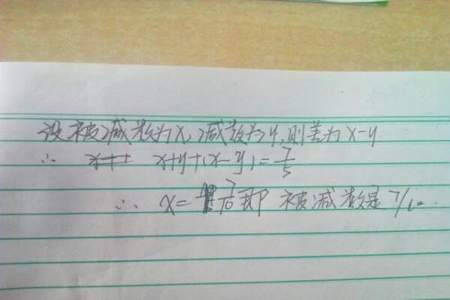 设被减数为x,减数为y,则差为x-y
∴ x+y+(x-y)=7/5
∴ x=7/10即被减数是7/10.